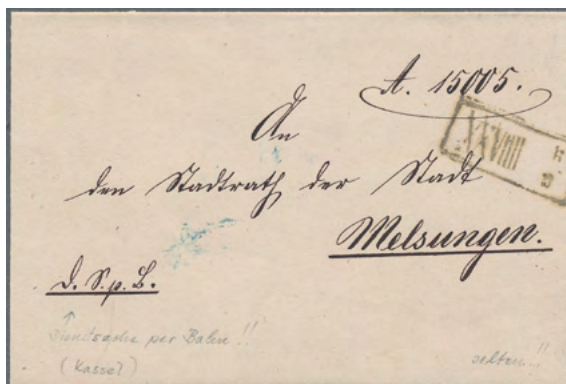 A. 15005.
An
den Stadtrath der Stadt
Melsungen.
d. S. p. B.
Dienstsache per Bahn!!
(Kassel)
selten!!!